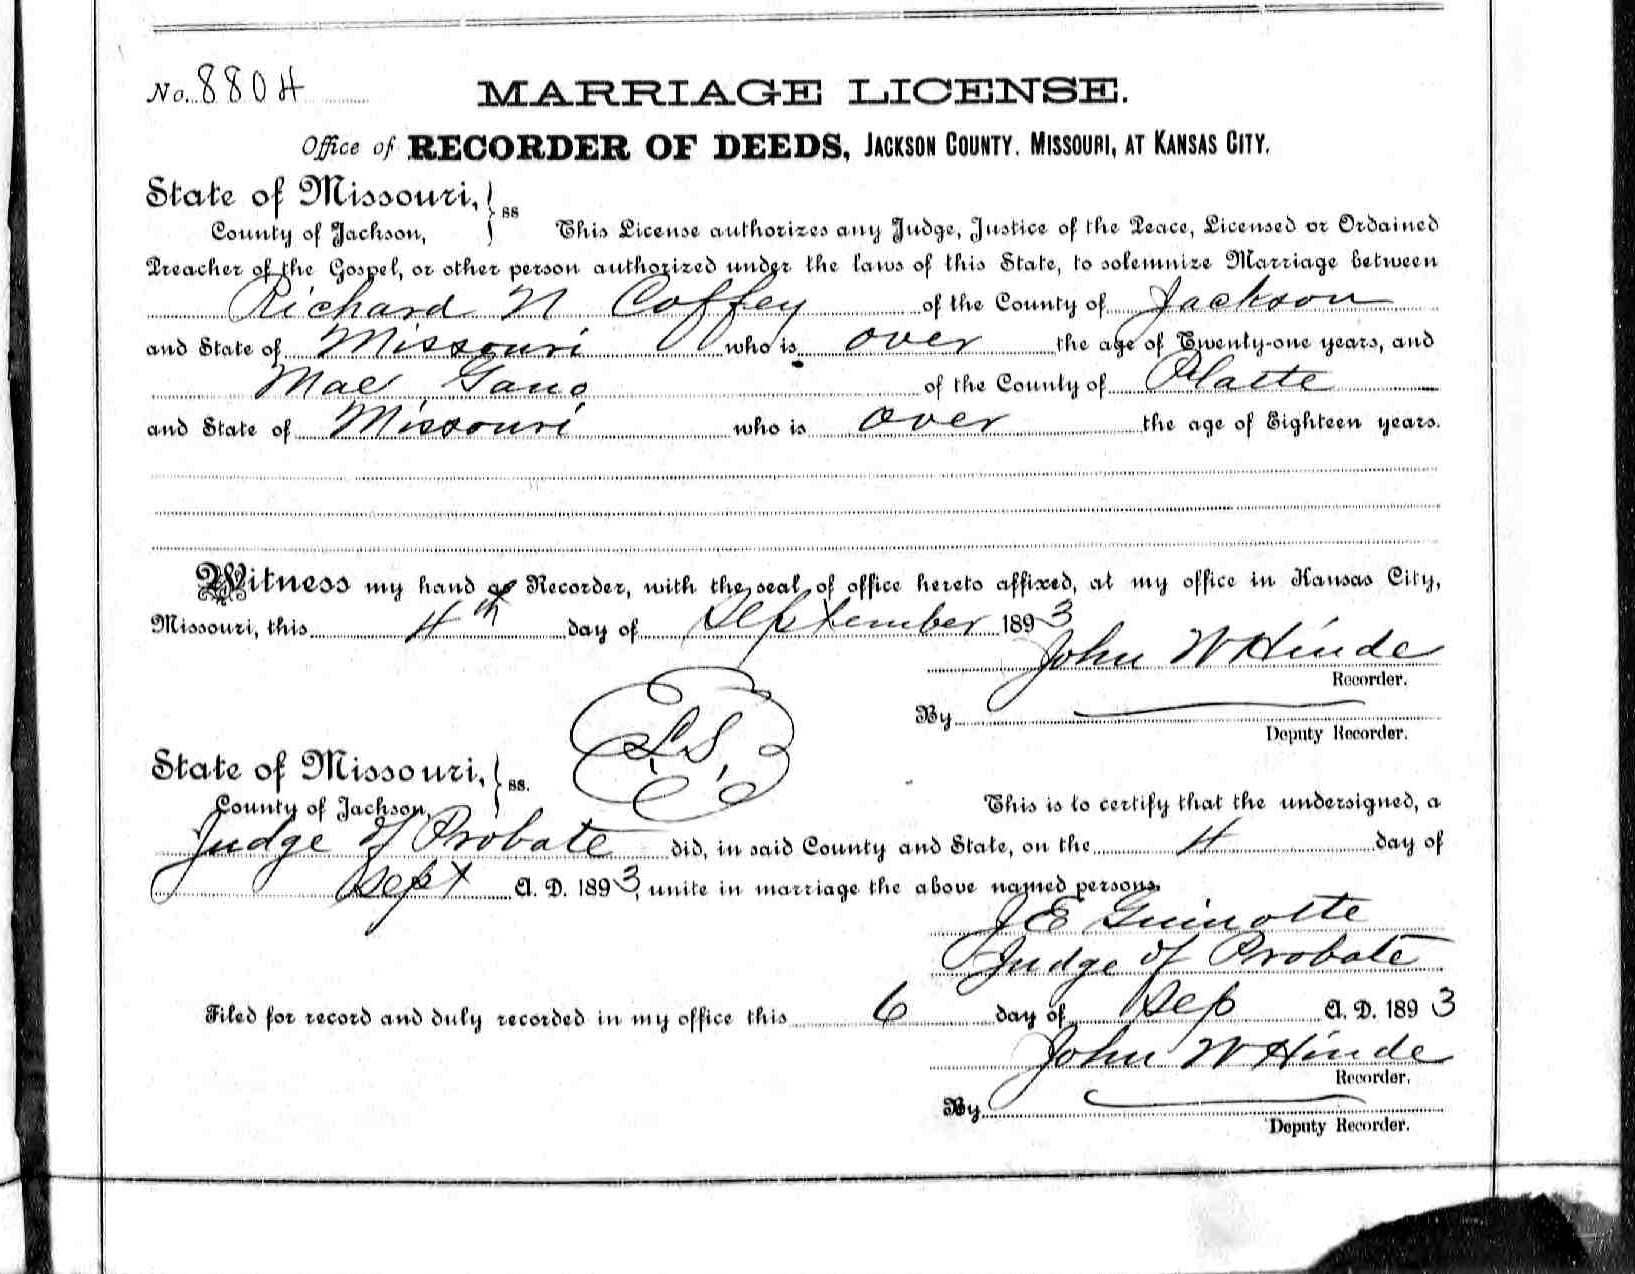 No. 8804 MARRIAGE LICENSE.
Office of RECORDER OF DEEDS, JACKSON COUNTY. MISSOURI, AT KANSAS CITY.
State of Missouri, } ss
County of Jackson,
This License authorizes any Judge, Justice of the Peace, Licensed or Ordained
Preacher of the Gospel, or other person authorized under the laws of this State, to solemnize Marriage between
Richard N Coffey of the County of Jackson
and State of Missouri who is over the age of Twenty-one years, and
Mae Gano of the County of Platte
and State of Missouri who is over the age of Eighteen years.
Witness my hand as Recorder, with the seal of office hereto affixed, at my office in Kansas City,
Missouri, this 4th day of September 1893
John W Hinde
Recorder.
By
Deputy Recorder.
L.S.
State of Missouri, } ss.
County of Jackson,
This is to certify that the undersigned, a
Judge of Probate did, in said County and State, on the 4 day of
Sept A. D. 1893, unite in marriage the above named persons.
J E Guinotte
Judge of Probate
Filed for record and duly recorded in my office this 6 day of Sep A. D. 1893
John W Hinde
Recorder.
By
Deputy Recorder.